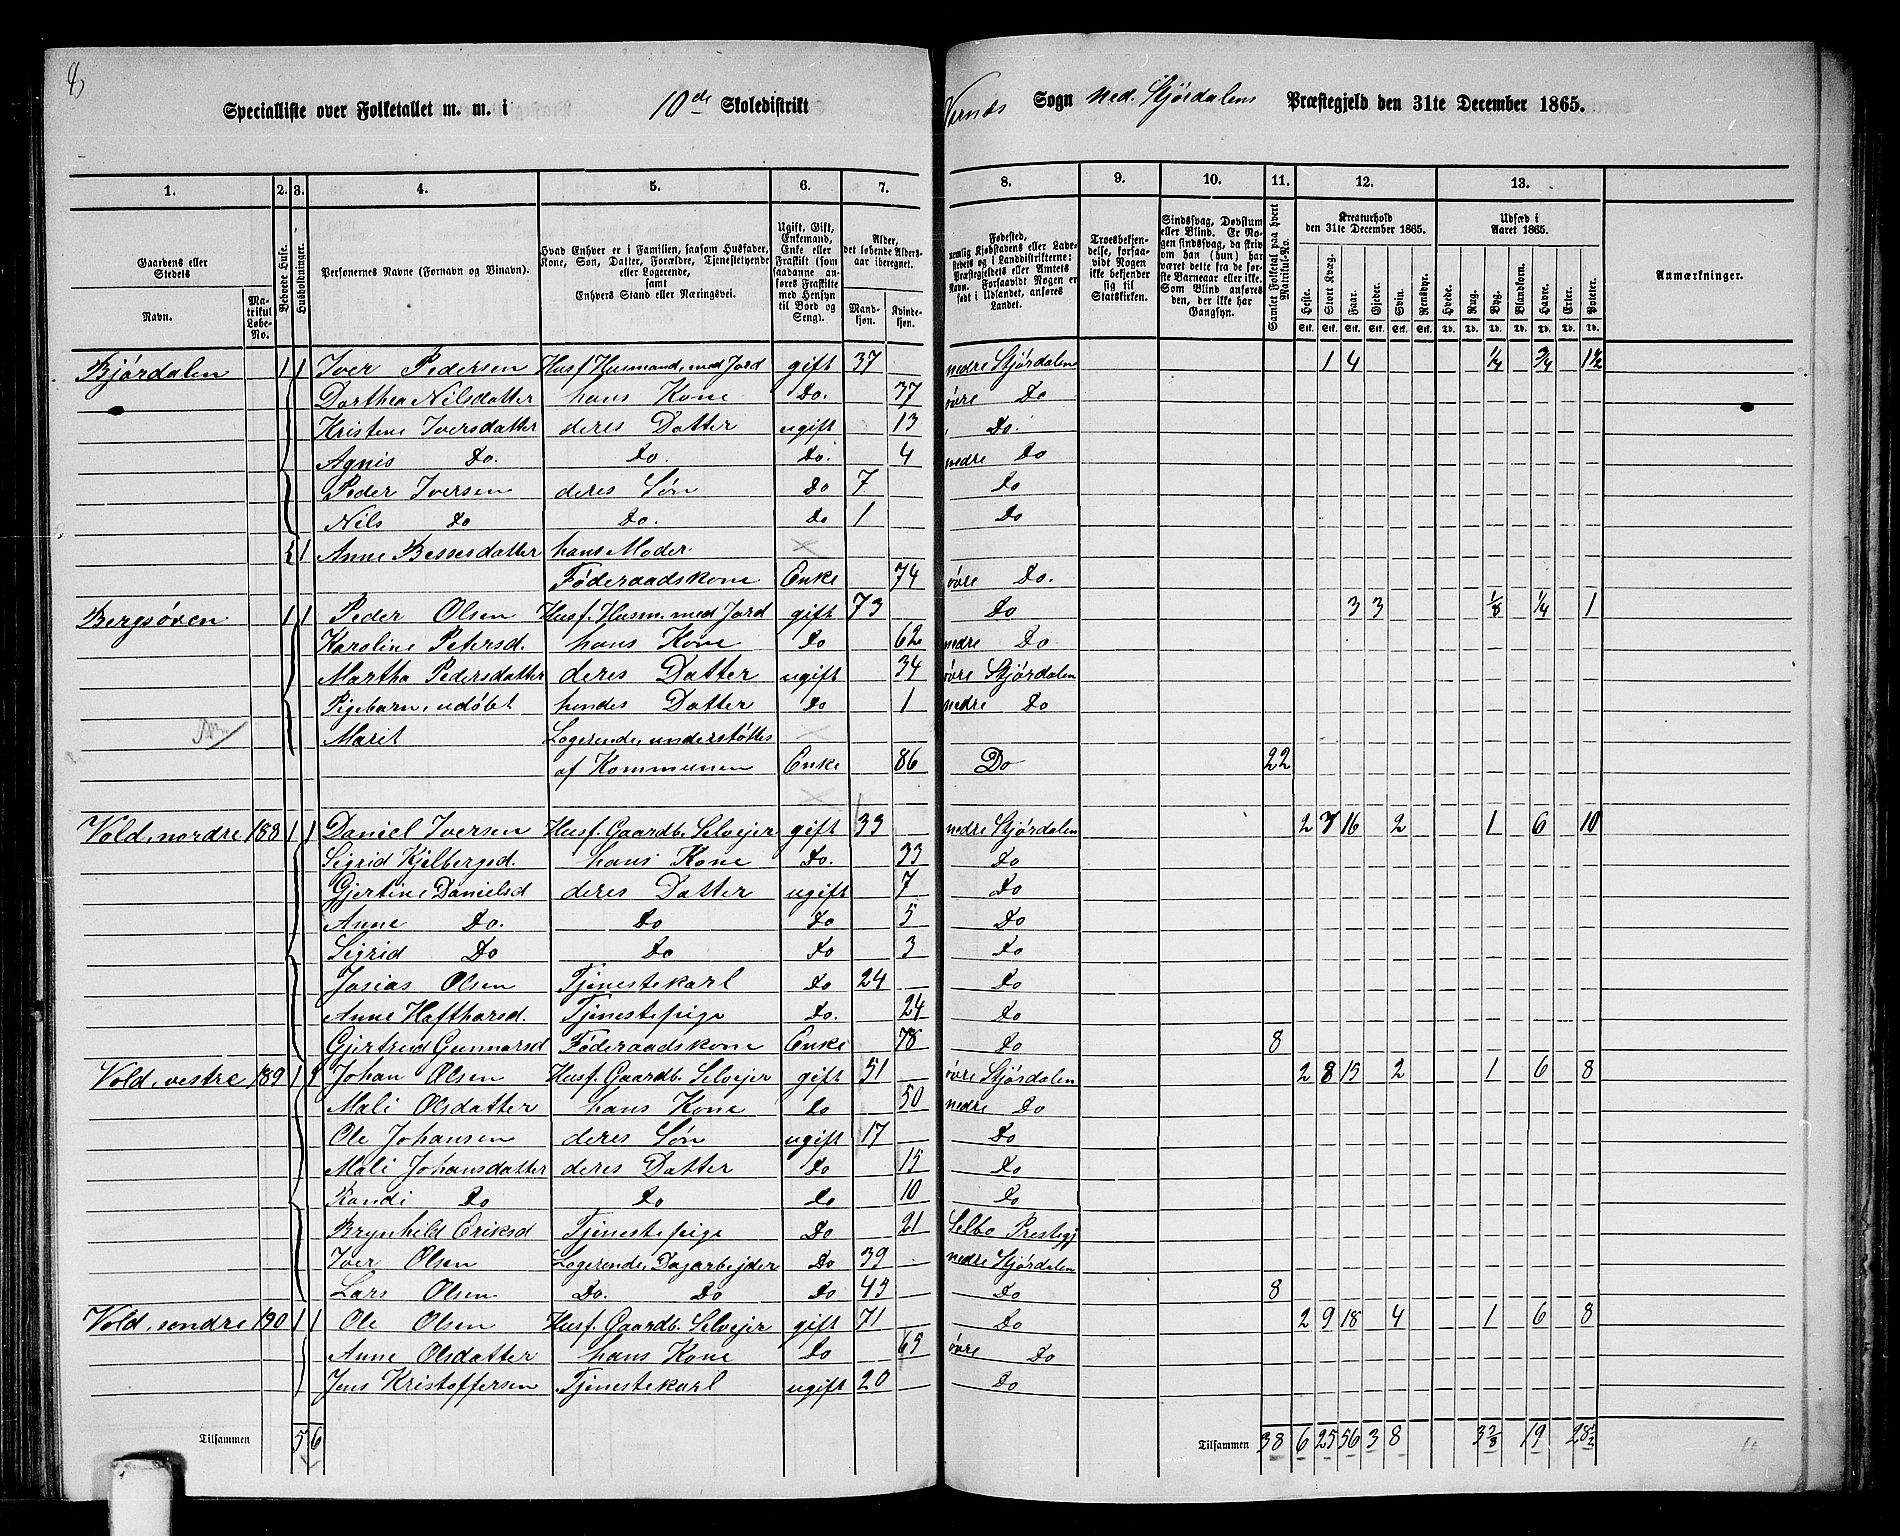 8
Specialliste over Folketallet m. m. i 10de Skoledistrikt Værnes Sogn Ned. Stjørdalens Præstegjeld den 31te December 1865.
1. 2. 3. 4. 5. 6. 7. 8. 9. 10. 11. 12. 13.
Gaardens eller Stedets
Navn.
Matrikul Løbe-No.
Beboede Huse.
Husholdninger.
Personernes Navne (Fornavn og Binavn).
Hvad Enhver er i Familien, saasom Husfader, Kone, Søn, Datter, Forældre, Tjenestetyende eller Logerende, samt Enhvers Stand eller Næringsvei.
Ugift, Gift, Enkemand, Enke eller Fraskilt (som saadanne anføres Fraskilte med Hensyn til Bord og Seng).
Alder, det løbende Aldersaar iberegnet.
Mandkjøn. Kvindekjøn.
Fødested, nemlig Kjøbstadens eller Ladestedets og i Landdistrikterne: Præstegjeldets eller Amtets Navn. Forsaavidt Nogen er født i Udlandet, anføres Landet.
Troesbekjendelse, forsaavidt Nogen ikke bekjender sig til Statskirken.
Sindssvag, Døvstum eller Blind. Er Nogen sindssvag, da skriv om han (hun) har været dette fra de første Barneaar eller ikke. Som Blind anføres den, der ikke har Gangsyn.
Samlet Folketal paa hvert Matrikul-No.
Kreaturhold den 31te December 1865.
Heste. Stort Kvæg. Faar. Gjeder. Svin. Rensdyr.
Udsæd i Aaret 1865.
Hvede. Rug. Byg. Blandkorn. Havre. Erter. Poteter.
Anmærkninger.
Bjørdalen 1 1 Iver Pedersen Husf. Husmand, med Jord gift 37 nedre Stjørdalen 1 4 1/4 3/4 1 1/2
Dorthea Nilsdatter hans Kone Do. 37 øvre Do
Kristine Iversdatter deres Datter ugift 13 Do.
Agnis Do. Do. Do. 4 nedre Do
Peder Iversen deres Søn Do 7 Do
Nils Do Do. Do 1 Do
1 Anne Bessesdatter hans Moder
Føderaadskone Enke 74 øvre Do.
Bergsøven 1 1 Peder Olsen Husf. Husm. med Jord gift 73 Do 3 3 1/8 1/4 1
Karoline Petersd. hans Kone Do 62 nedre Do
Martha Pedersdatter deres Datter ugift 34 øvre Stjørdalen
Pigebarn, udøbt hendes Datter Do 1 nedre Do
Marit Logerende, understøttes
af Kommunen Enke 86 Do 22
Vold, nordre 188 1 1 Daniel Iversen Husf. Gaardb. Selvejer gift 33 nedre Stjørdalen 2 7 16 2 1 6 10
Sigrid Kjelbergsd. hans Kone Do. 33 Do
Gjertine Danielsd deres Datter ugift 7 Do
Anne Do. Do Do 5 Do
Sigrid Do Do Do 3 Do
Josias Olsen Tjenestekarl Do 24 Do
Anne Hafthorsd. Tjenestepige Do. 24 Do
Gjertrud Gunnarsd Føderaadskone Enke 78 Do 8
Vold, vestre 189 1 1 Johan Olsen Husf. Gaardb. Selvejer gift 51 øvre Stjørdalen 2 8 15 2 1 6 8
Mali Olsdatter hans Kone Do 50 nedre Do
Ole Johansen deres Søn ugift 17 Do
Mali Johansdatter deres Datter Do 15 Do
Randi Do Do Do 10 Do
Brynhild Eriksd Tjenestepige Do 21 Selbo Prestegj
Iver Olsen Logerende, Dagarbejder Do 39 nedre Stjørdalen
Lars Olsen Do. Do Do 45 Do 8
Vold, søndre 190 1 1 Ole Olsen Husf. Gaardb. Selvejer gift 71 Do 2 9 18 4 1 6 8
Anne Olsdatter hans Kone Do 65 øvre Do
Jens Kristoffersen Tjenestekarl ugift 20 Do
Tilsammen 5 6 Tilsammen 38 6 25 56 3 8 3 3/8 19 28 1/2